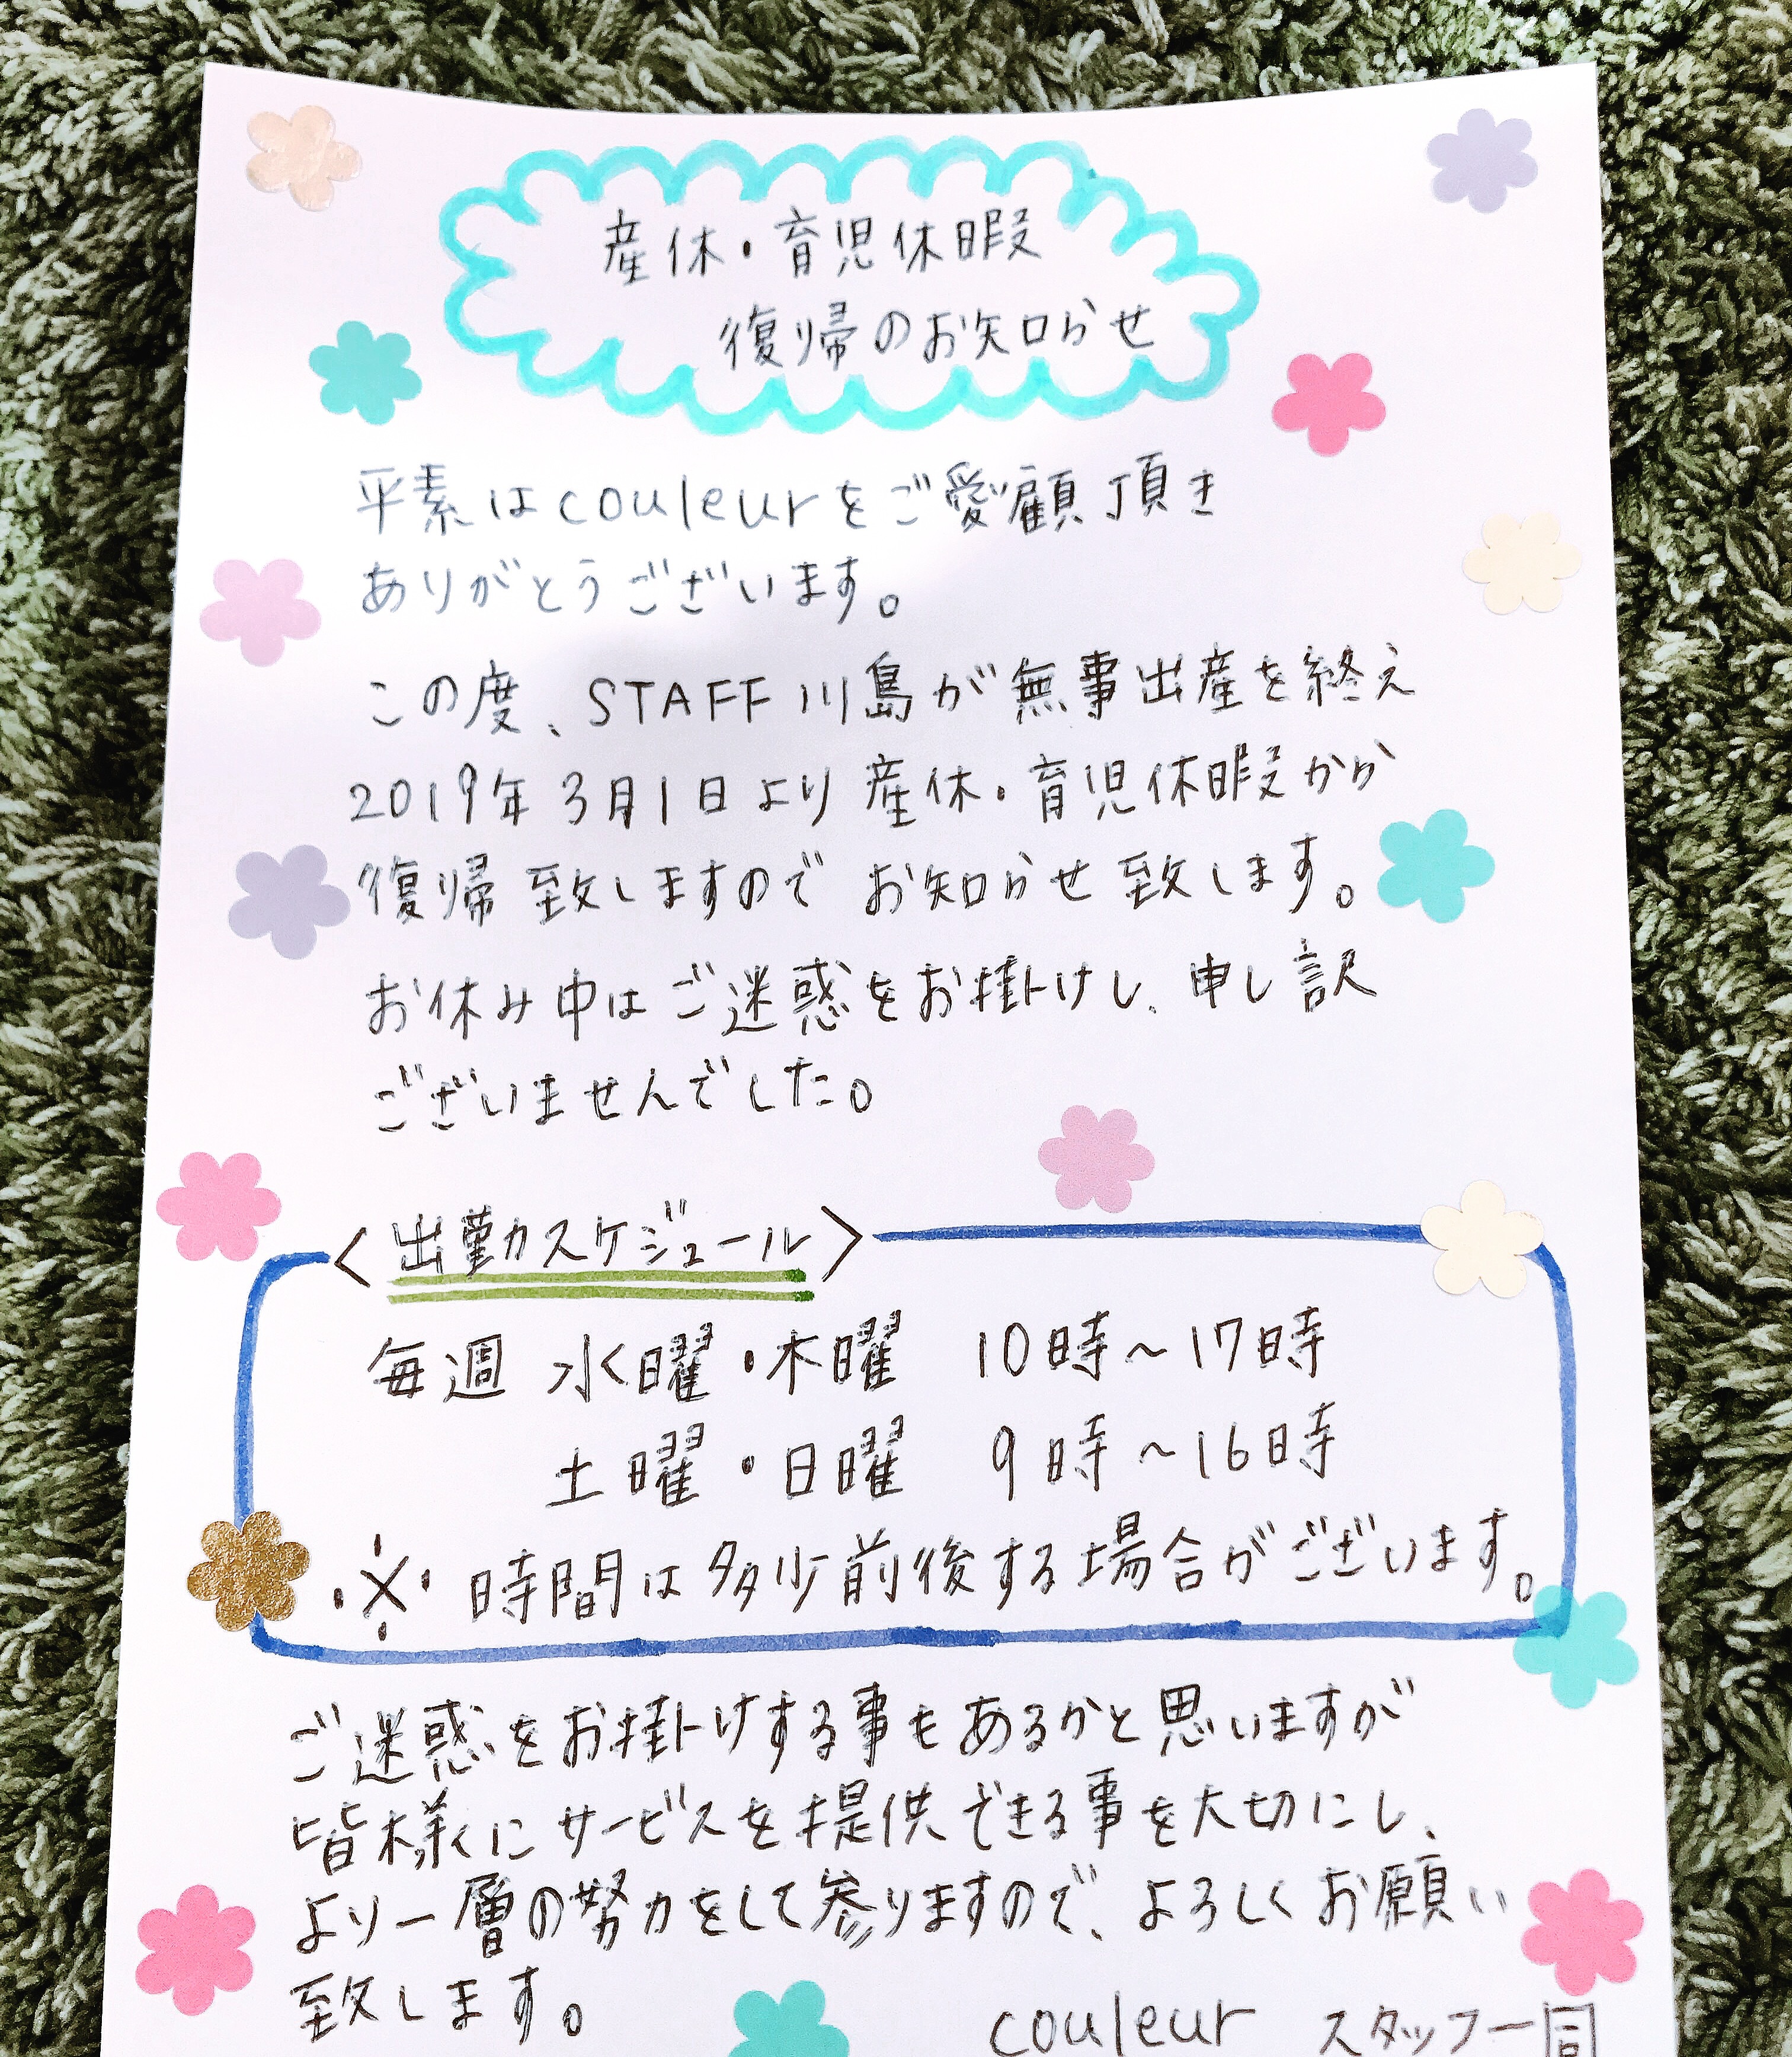 産休・育児休暇
復帰のお知らせ
平素はcouleurをご愛顧頂き
ありがとうございます。
この度、STAFF川島が無事出産を終え
2019年3月1日より産休・育児休暇から
復帰致しますのでお知らせ致します。
お休み中はご迷惑をお掛けし、申し訳
ございませんでした。
<出勤スケジュール>
毎週 水曜・木曜 10時~17時
土曜・日曜 9時~16時
※時間は多少前後する場合がございます。
ご迷惑をお掛けする事もあるかと思いますが
皆様にサービスを提供できる事を大切にし、
より一層の努力をして参りますので、よろしくお願い
致します。
couleur スタッフ一同